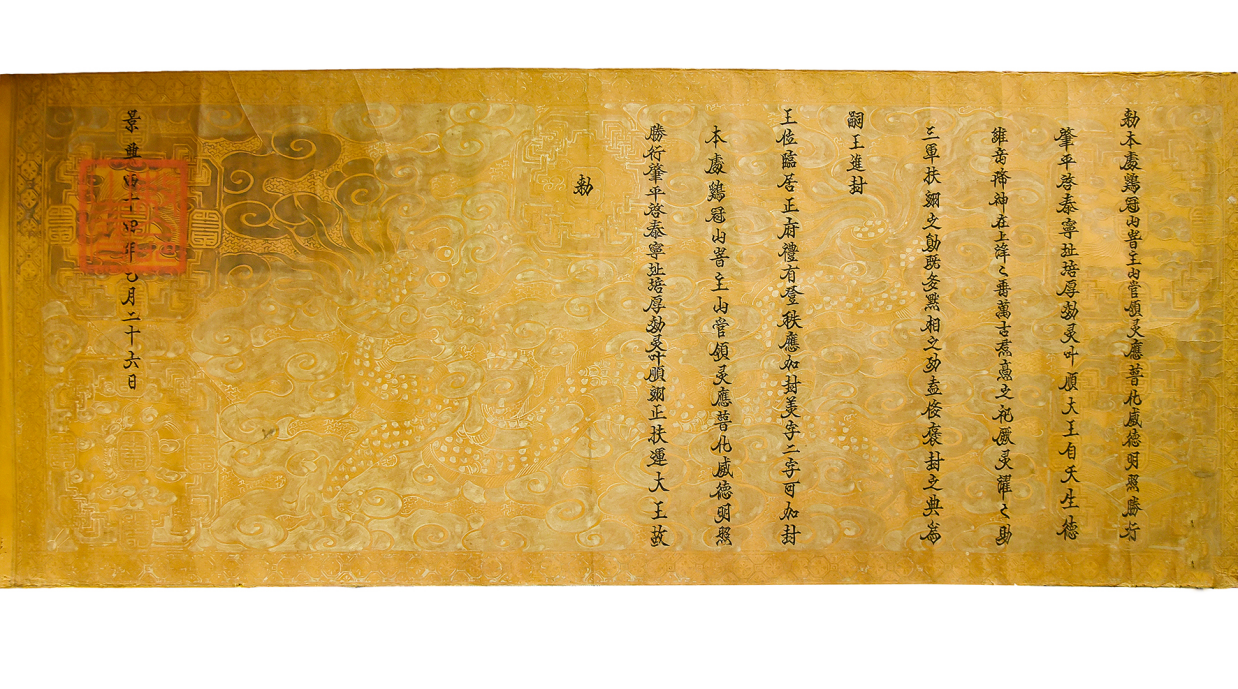 勑本處鷄冠山峕主山當領灵應普化威德明照勝行
肇平啓泰寧址培厚効灵叶順大王自天生德
維嶽降神在上洋〻垂萬古焄蒿之祀厥灵濯〻助
三軍扶翊之勛既多黙相之功盍俊褒封之典爲
嗣王進封
王位臨居正府禮有登秩應加封美字二字可加封
本處鷄冠山峕主山當領灵應普化威德明照
勝行肇平啓泰寧址培厚効灵叶順翊正扶運大王故
勑
景興四十四年 月二十六日